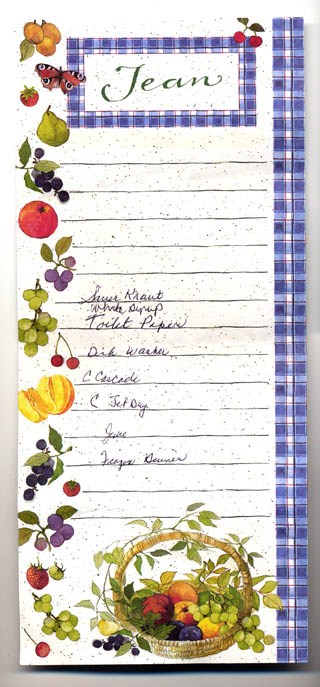 Jean
Sauer Kraut
White Syrup
Toilet Paper
Dish Washer
C Cascade
C Jet Dry
Frozen Dinner